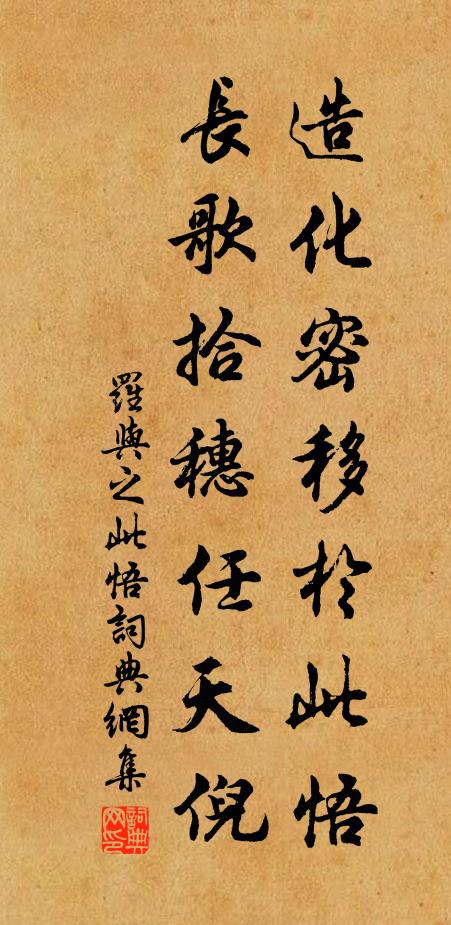 造化密移於此悟
長歌拾穗任天倪
羅與之此悟詞典網集
詞典网印